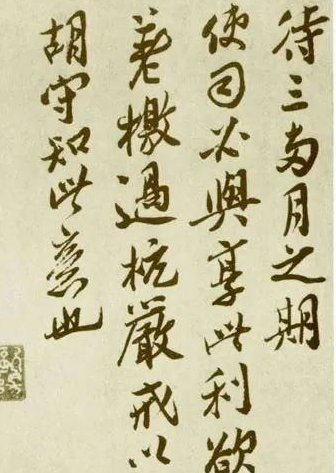 待三两月之期
使司必與享此利欲
老檄過杭嚴戒以
胡守知此意也